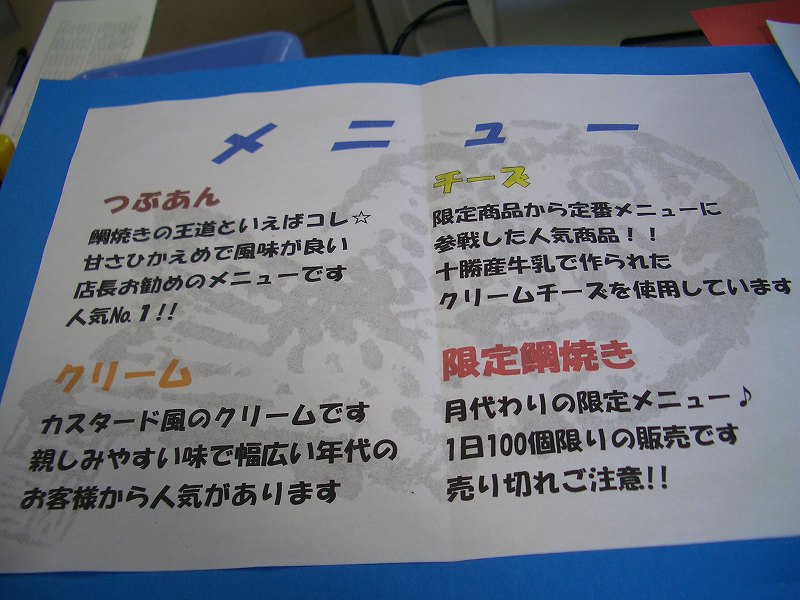 メニュー
つぶあん
鯛焼きの王道といえばコレ☆
甘さひかえめで風味が良い
店長お勧めのメニューです
人気No.1!!
クリーム
カスタード風のクリームです
親しみやすい味で幅広い年代の
お客様から人気があります
チーズ
限定商品から定番メニューに
参戦した人気商品!!
十勝産牛乳で作られた
クリームチーズを使用しています
限定鯛焼き
月代わりの限定メニュー♪
1日100個限りの販売です
売り切れご注意!!